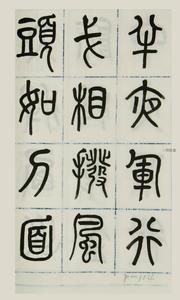 半夜軍行
戈相撥風
頭如刀面